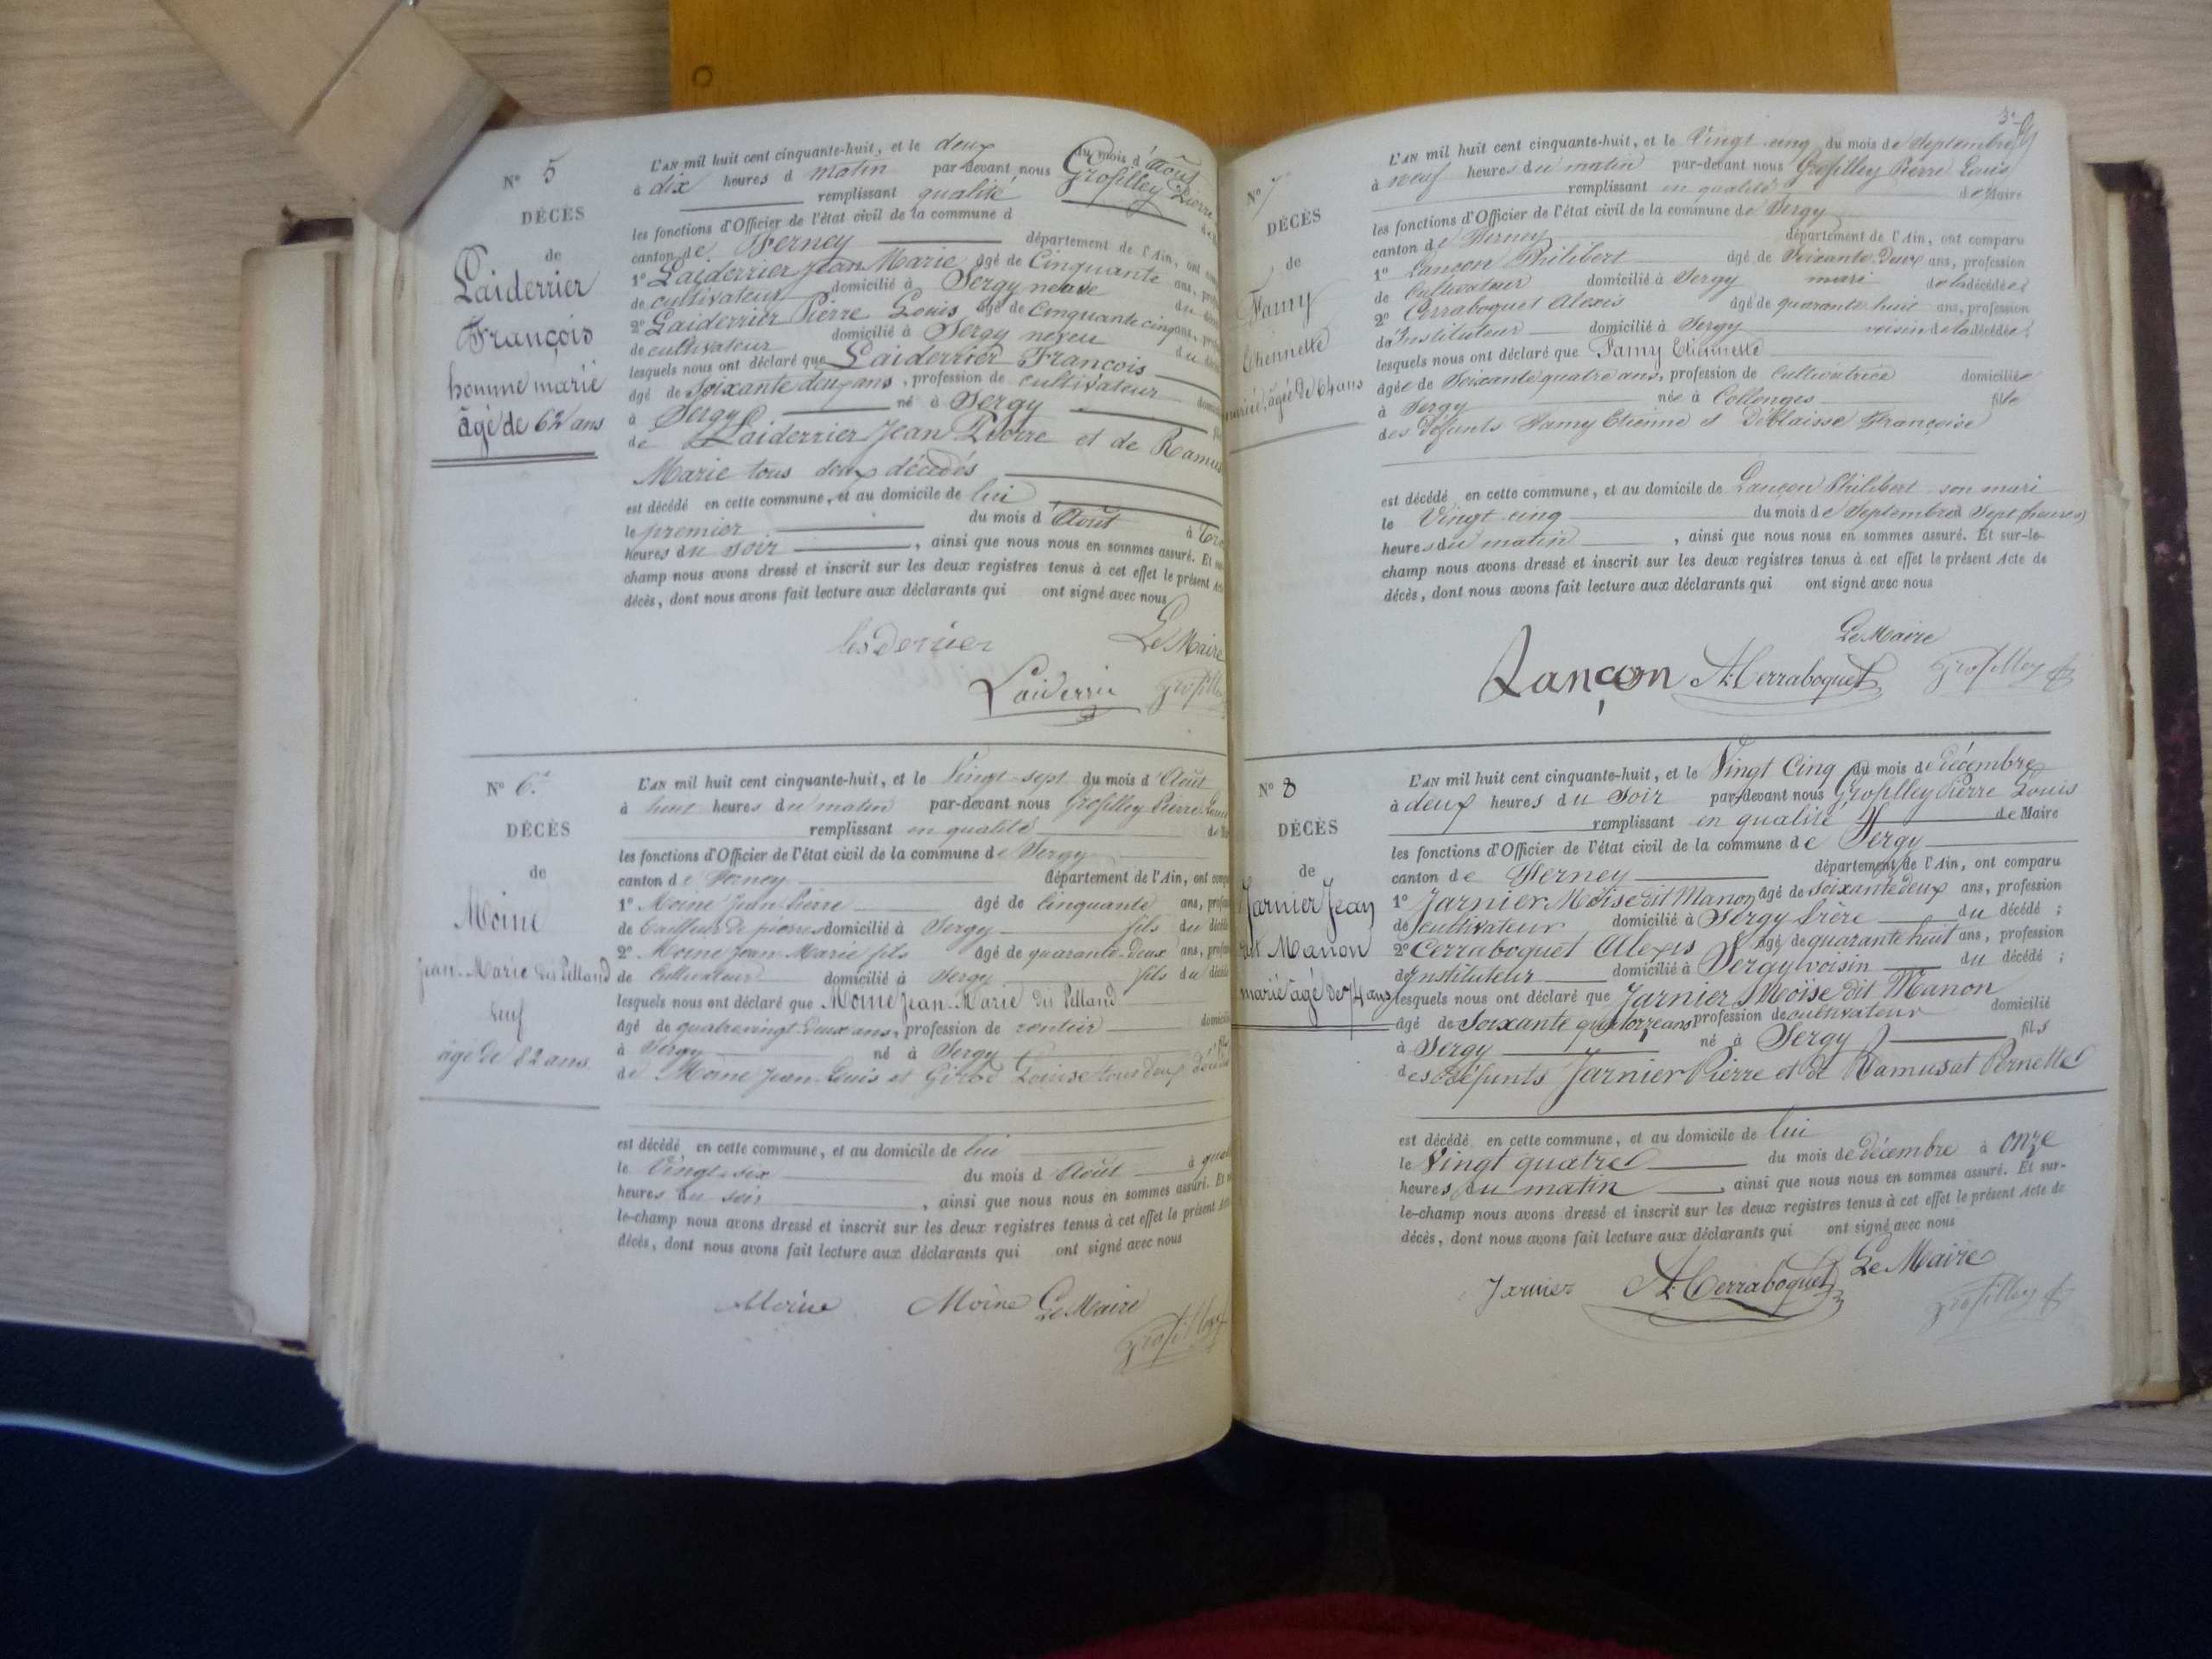 N° 5
DÉCÈS
de
Laiderrier
François
homme marié
âgé de 62 ans
L'AN mil huit cent cinquante-huit, et le deux du mois d'Août
à dix heures d matin par-devant nous Grosfilley Pierre
remplissant qualité
les fonctions d'Officier de l'état civil de la commune d
canton de Ferney département de l'Ain, ont
1° Laiderrier Jean Marie âgé de Cinquante ans,
de cultivateur domicilié à Sergy du
2° Laiderrier Pierre Louis âgé de Cinquante cinq ans,
de cultivateur domicilié à Sergy neveu du
lesquels nous ont déclaré que Laiderrier François
âgé de Soixante deux ans, profession de cultivateur
à Sergy né à Sergy
de Laiderrier Jean Pierre et de Ramus
Marie tous deux décédés
est décédé en cette commune, et au domicile de lui
le premier du mois d'Août à
heures du soir, ainsi que nous nous en sommes assuré. Et
champ nous avons dressé et inscrit sur les deux registres tenus à cet effet le présent
décès, dont nous avons fait lecture aux déclarants qui ont signé avec nous
Le Maire
N° 6
DÉCÈS
de
Moine
Jean-Marie dit Pelland
veuf
âgé de 82 ans
L'AN mil huit cent cinquante-huit, et le Vingt-sept du mois d'Août
à huit heures du matin par-devant nous Grosfilley Pierre Louis
remplissant en qualité
les fonctions d'Officier de l'état civil de la commune de Sergy
canton de Ferney département de l'Ain, ont
1° Moine Jean Pierre âgé de Cinquante ans,
de tailleur de pierres domicilié à Sergy fils du
2° Moine Jean Marie fils âgé de quarante-deux ans,
de Cultivateur domicilié à Sergy fils du
lesquels nous ont déclaré que Moine Jean-Marie dit Pelland
âgé de quatrevingt-deux ans, profession de rentier
à Sergy né à Sergy
de Moine Jean-Louis et Girod Louise tous deux
est décédé en cette commune, et au domicile de lui
le Vingt-six du mois d'Août à
heures du soir, ainsi que nous nous en sommes assuré. Et
le-champ nous avons dressé et inscrit sur les deux registres tenus à cet effet le présent
décès, dont nous avons fait lecture aux déclarants qui ont signé avec nous
Moine Moine Le Maire
N° 7
DÉCÈS
de
Famy
Etiennette
mariée, âgée de 64 ans
L'AN mil huit cent cinquante-huit, et le Vingt cinq du mois de Septembre
à neuf heures du matin par-devant nous Grosfilley Pierre Louis
remplissant en qualité de Maire
les fonctions d'Officier de l'état civil de la commune de Sergy
canton de Ferney département de l'Ain, ont comparu
1° Lançon Philibert âgé de Soixante Deux ans, profession
de Cultivateur domicilié à Sergy mari de la décédée
2° Cerraboquet Alexis âgé de quarante huit ans, profession
d'Instituteur domicilié à Sergy voisin de la décédée;
lesquels nous ont déclaré que Famy Etiennette
âgée de Soixante quatre ans, profession de Cultivatrice domiciliée
à Sergy née à Collonges fille
des défunts Famy Etienne et Françoise
est décédé en cette commune, et au domicile de Lançon Philibert son mari
le Vingt cinq du mois de Septembre à Sept (heures)
heures du matin, ainsi que nous nous en sommes assuré. Et sur-le-
champ nous avons dressé et inscrit sur les deux registres tenus à cet effet le présent Acte de
décès, dont nous avons fait lecture aux déclarants qui ont signé avec nous
Le Maire
Lançon A. Cerraboquet Grosfilley
N° 8
DÉCÈS
de
Jarnier Jean
dit Manon
marié âgé de 74 ans
L'AN mil huit cent cinquante-huit, et le Vingt Cinq du mois de décembre
à deux heures du soir par-devant nous Grosfilley Pierre Louis
remplissant en qualité de Maire
les fonctions d'Officier de l'état civil de la commune de Sergy
canton de Ferney département de l'Ain, ont comparu
1° Jarnier Moïse dit Manon âgé de soixante deux ans, profession
de cultivateur domicilié à Sergy frère du décédé;
2° Cerraboquet Alexis âgé de quarante huit ans, profession
d'Instituteur domicilié à Sergy voisin du décédé;
lesquels nous ont déclaré que Jarnier Moïse dit Manon
âgé de Soixante quatorze ans profession de cultivateur domicilié
à Sergy né à Sergy fils
des Défunts Jarnier Pierre et de Ramusat Pernette
est décédé en cette commune, et au domicile de lui
le Vingt quatre du mois de décembre à onze
heures du matin, ainsi que nous nous en sommes assuré. Et sur-
le-champ nous avons dressé et inscrit sur les deux registres tenus à cet effet le présent Acte de
décès, dont nous avons fait lecture aux déclarants qui ont signé avec nous
Le Maire
Jarnier A. Cerraboquet Grosfilley